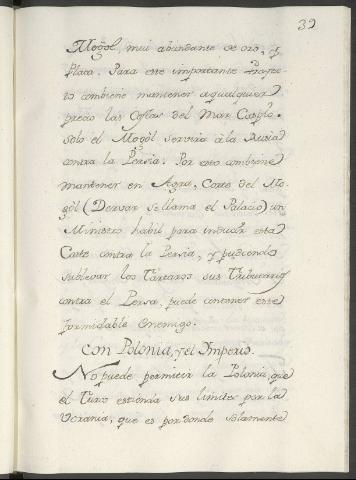 39
Mogòl, mui abundante de oro, y
Plata. Para este importante Proyec-
to combiene mantener a qualquier
precio las Costas del Mar Caspio.
solo el Mogòl servirà à la Rusia
contra la Persia: Por esto combiene
mantener en Agra, Corte del Mo-
gòl (Dervar se llama el Palacio) un
Ministro habil para induzir esta
Corte contra la Persia, y pudiendo
sublevar los Tartaros sus Tributarios
contra el Persa, puede contener este
formidable Enemigo.
Con Polonia, y el Imperio.
No puede permitir la Polonia, que
el Turco estienda sus limites por la
Ucrania, que es por donde solamente